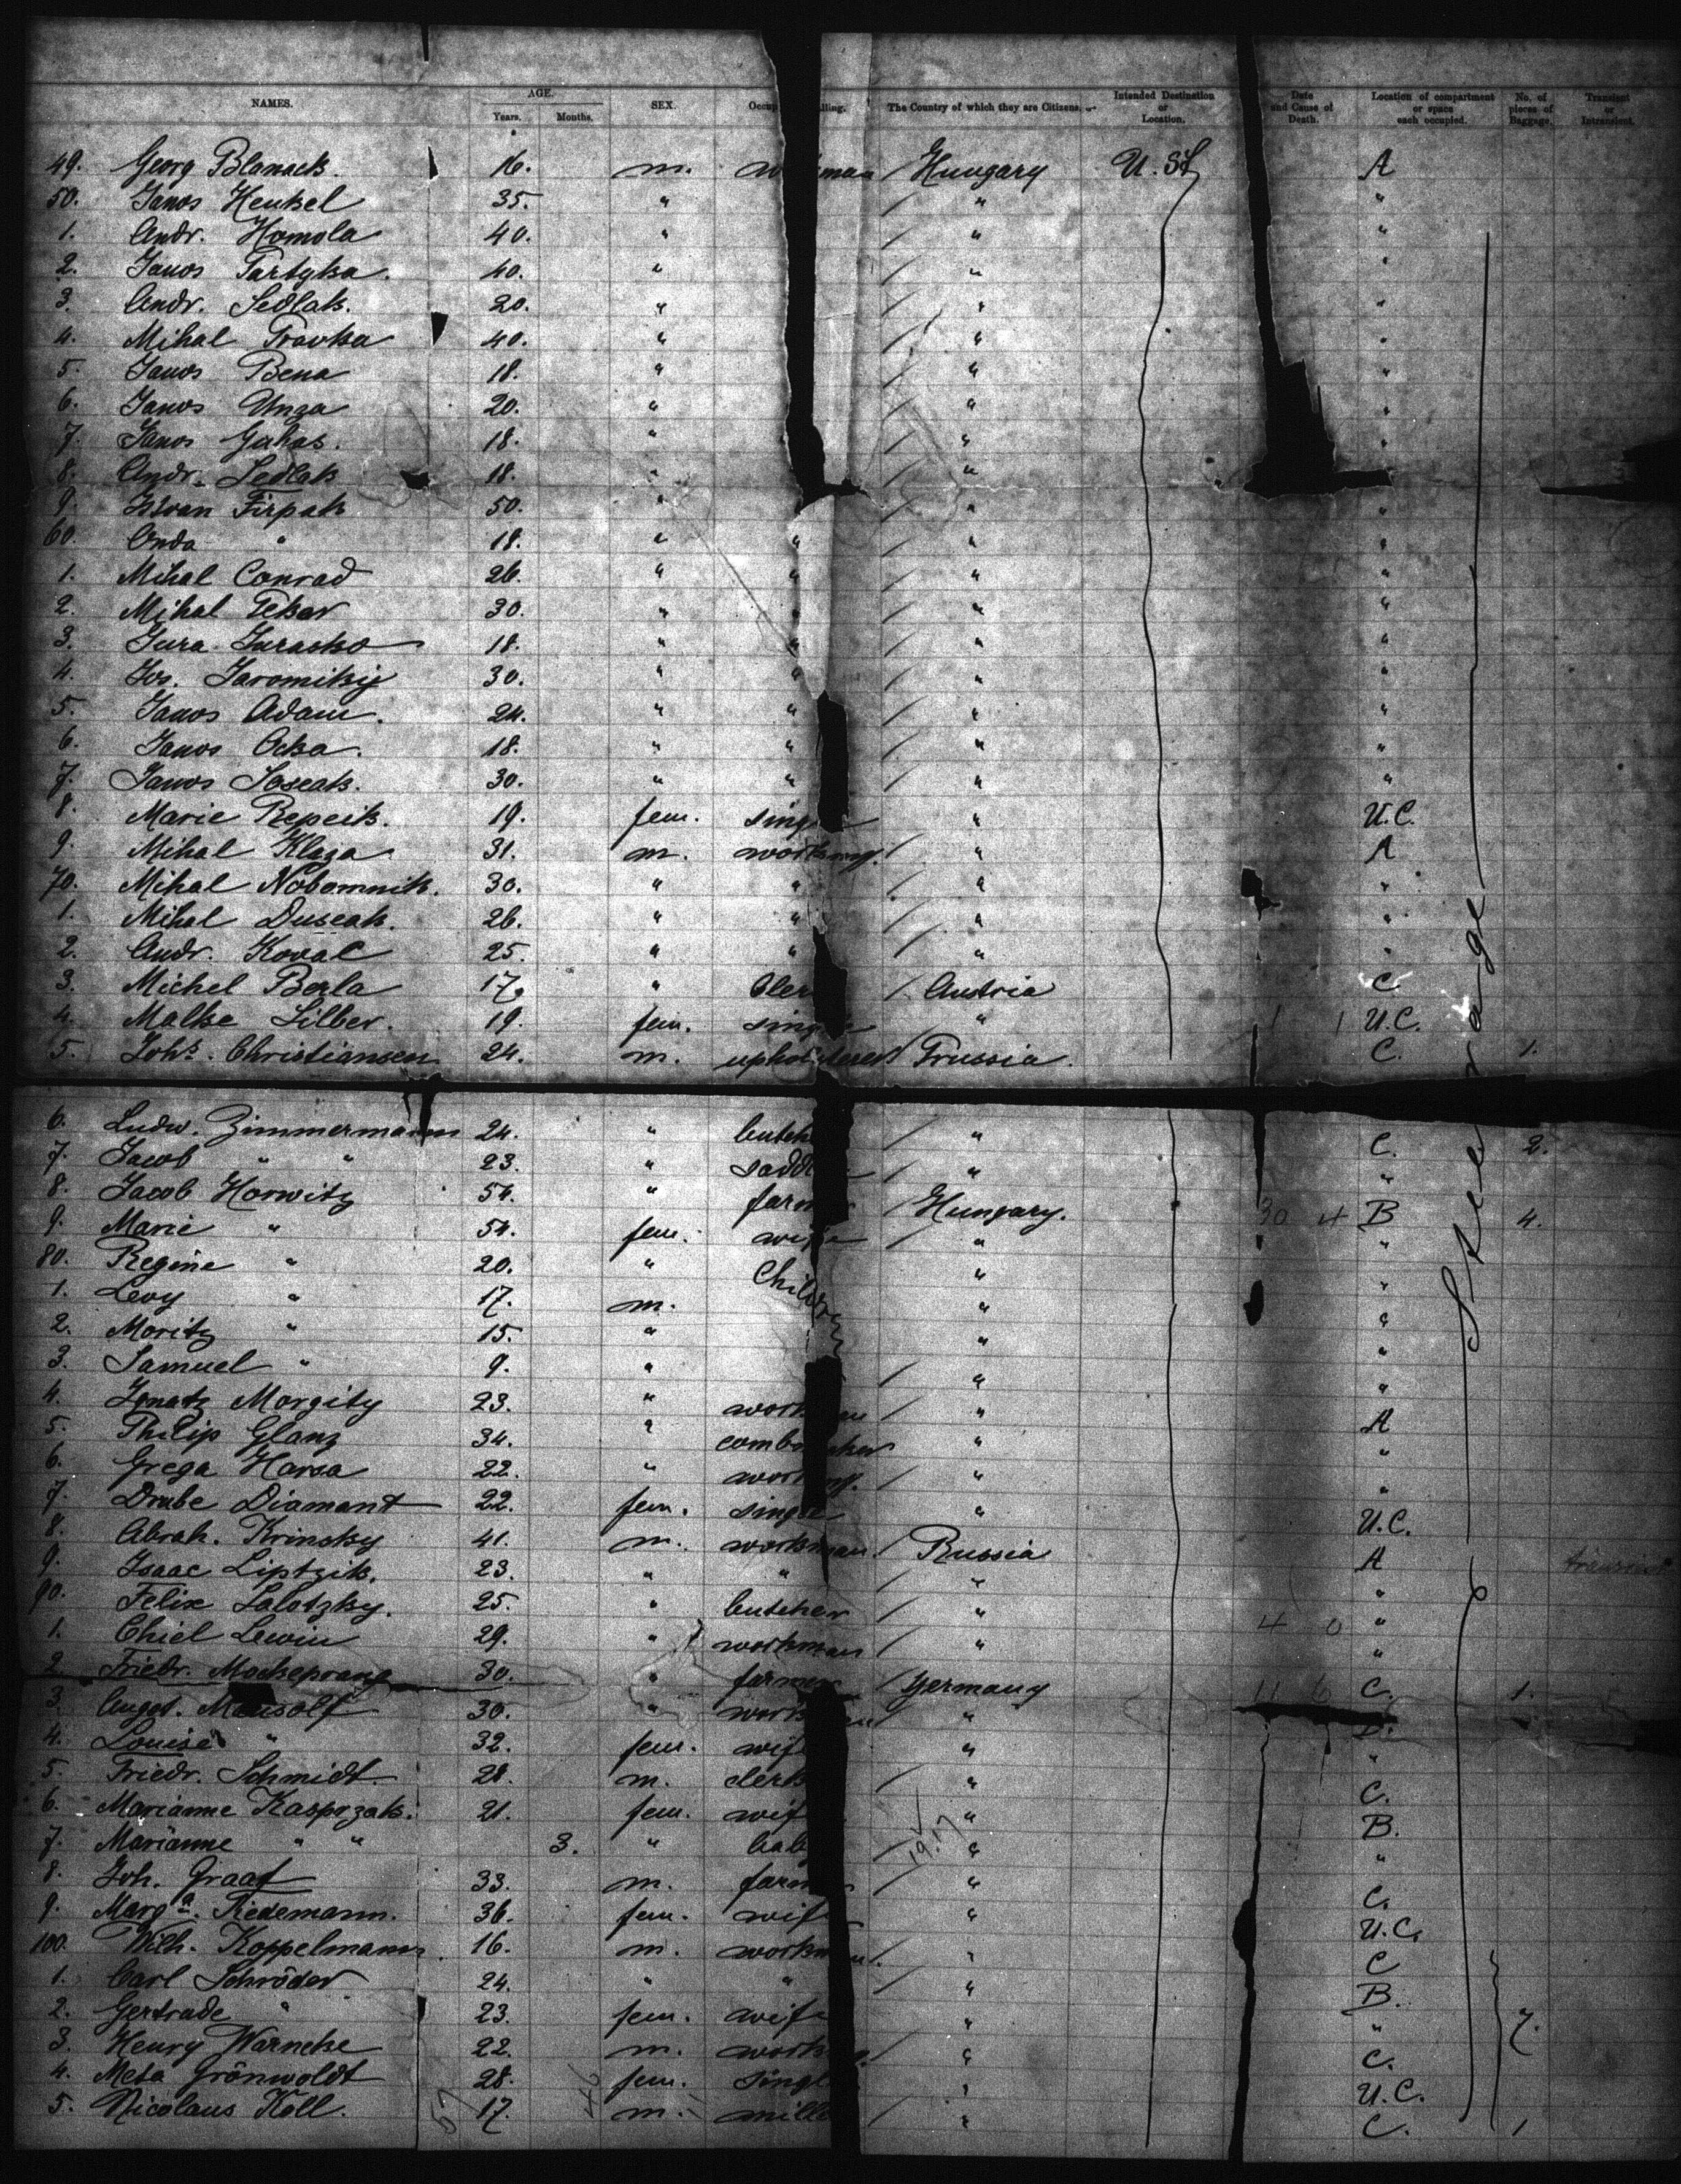 NAMES. AGE. Years. Months. SEX. Occup lling. The Country of which they are Citizens. Intended Destination or Location. Date and Cause of Death. Location of compartment or space each occupied. No. of pieces of Baggage. Transient or Intransient.
49. Georg Blanack. 16. m. w man Hungary U. St A
50. Janos Henkel 35. " " "
1. Andr. Homola 40. " " "
2. Janos Partyka. 40. " " "
3. Andr. Sedlak. 20. " " "
4. Mihal Travka 40. " " "
5. Janos Bena 18. " " "
6. Janos Unga 20. " " "
7. Janos Juhas. 18. " " "
8. Andr. Sedlak 18. " "
9. Istvan Firpak 50. " " "
60. Anda " 18. " " " "
1. Mihal Conrad 26. " " " "
2. Mihal Tekar 30. " " " "
3. Jura Jurasko 18. " " " "
4. Jos. Jaromikij 30. " " " "
5. Janos Adam. 24. " " " "
6. Janos Ocka. 18. " " " "
7. Janos Soseak. 30. " " " "
8. Marie Repcik. 19. fem. sing " U.C.
9. Mihal Klaga 31. m. workm. " A
70. Mihal Nobomnik. 30. " " " "
1. Mihal Duseak. 26. " " " "
2. Andr. Koval 25. " " " "
3. Michel Berla 17. " Cler Austria C.
4. Malke Silber. 19. fem. single " 1 1 U.C.
5. Johs. Christiansen 24. m. upholsterer Prussia. C. 1.
6. Ludw. Zimmermann 24. " butch " C. 2.
7. Jacob " " 23. " saddl " "
8. Jacob Horwitz 54. " farm Hungary. 30 4 B 4.
9. Marie " 54. fem. wife " "
80. Regine " 20. " Children " "
1. Levy " 17. m. " "
2. Moritz " 15. " " "
3. Samuel " 9. " " "
4. Ignatz Margity 23. " work n " A
5. Philip Glanz 34. " comb ker " "
6. Grega Harsa 22. " workm. " "
7. Drube Diamant 22. fem. single " U.C.
8. Abrah. Krinsky 41. m. workman. Russia A transient
9. Isaac Liptzik. 23. " " " "
90. Felix Salotzky. 25. " butcher " 4 0 "
1. Chiel Lewin 29. " workman " "
2. Friedr. Mackeprang 30. " farmer Germany 11 6 C. 1.
3. August. Mansolf 30. " work n " B.
4. Louise " 32. fem. wif " "
5. Friedr. Schmidt. 28. m. clerk " C.
6. Marianne Kasprzak. 21. fem. wif " B.
7. Marianne " " 3. " bab 19.17 " "
8. Joh. Graaf 33. m. farm " C.
9. Marga. Tiedemann. 36. fem. wif " U.C.
100. Wilh. Koppelmann. 16. m. workm . " C
1. Carl Schröder 24. " " " B.
2. Gertrude " 23. fem. wife " " 7.
3. Henry Warncke 22. m. workm. " C.
4. Meta Grönwoldt 28. fem. singl " U.C.
5. Nicolaus Koll. 57 17. m. mill " C. 1
Steerage